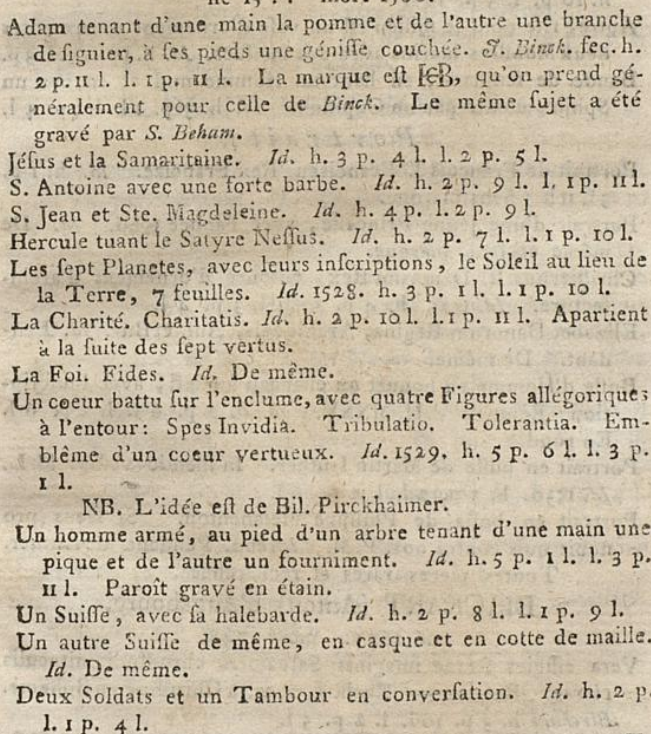 Adam tenant d'une main la pomme et de l'autre une branche
de ſiguier, à ſes pieds une géniſſe couchée. J. Binck. fec. h.
2 p. 11 l. l. 1 p. 11 l. La marque eſt, qu'on prend gé-
néralement pour celle de Binck. Le même ſujet a été
gravé par S. Beham.
Jéſus et la Samaritaine. Id. h. 3 p. 4 l. l. 2 p. 5 l.
S. Antoine avec une forte barbe. Id. h. 2 p. 9 l. l. 1 p. 11 l.
S. Jean et Ste. Magdeleine. Id. h. 4 p. l. 2 p. 9 l.
Hercule tuant le Satyre Neſſus. Id. h. 2 p. 7 l. l. 1 p. 10 l.
Les ſept Planetes, avec leurs inſcriptions, le Soleil au lieu de
la Terre, 7 feuilles. Id. 1528. h. 3 p. 1 l. l. 1 p. 10 l.
La Charité. Charitatis. Id. h. 2 p. 10 l. l. 1 p. 11 l. Apartient
à la ſuite des ſept vertus.
La Foi. Fides. Id. De même.
Un coeur battu ſur l'enclume, avec quatre Figures allégoriques
à l'entour: Spes Invidia. Tribulatio. Tolerantia. Em-
blême d'un coeur vertueux. Id. 1529. h. 5 p. 6 l. l. 3 p.
1 l.
NB. L'idée eſt de Bil. Pirckhaimer.
Un homme armé, au pied d'un arbre tenant d'une main une
pique et de l'autre un fourniment. Id. h. 5 p. 1 l. l. 3 p.
11 l. Paroît gravé en étain.
Un Suiſſe, avec ſa halebarde. Id. h. 2 p. 8 l. l. 1 p. 9 l.
Un autre Suiſſe de même, en casque et en cotte de maille.
Id. De même.
Deux Soldats et un Tambour en converſation. Id. h. 2 p.
l. 1 p. 4 l.